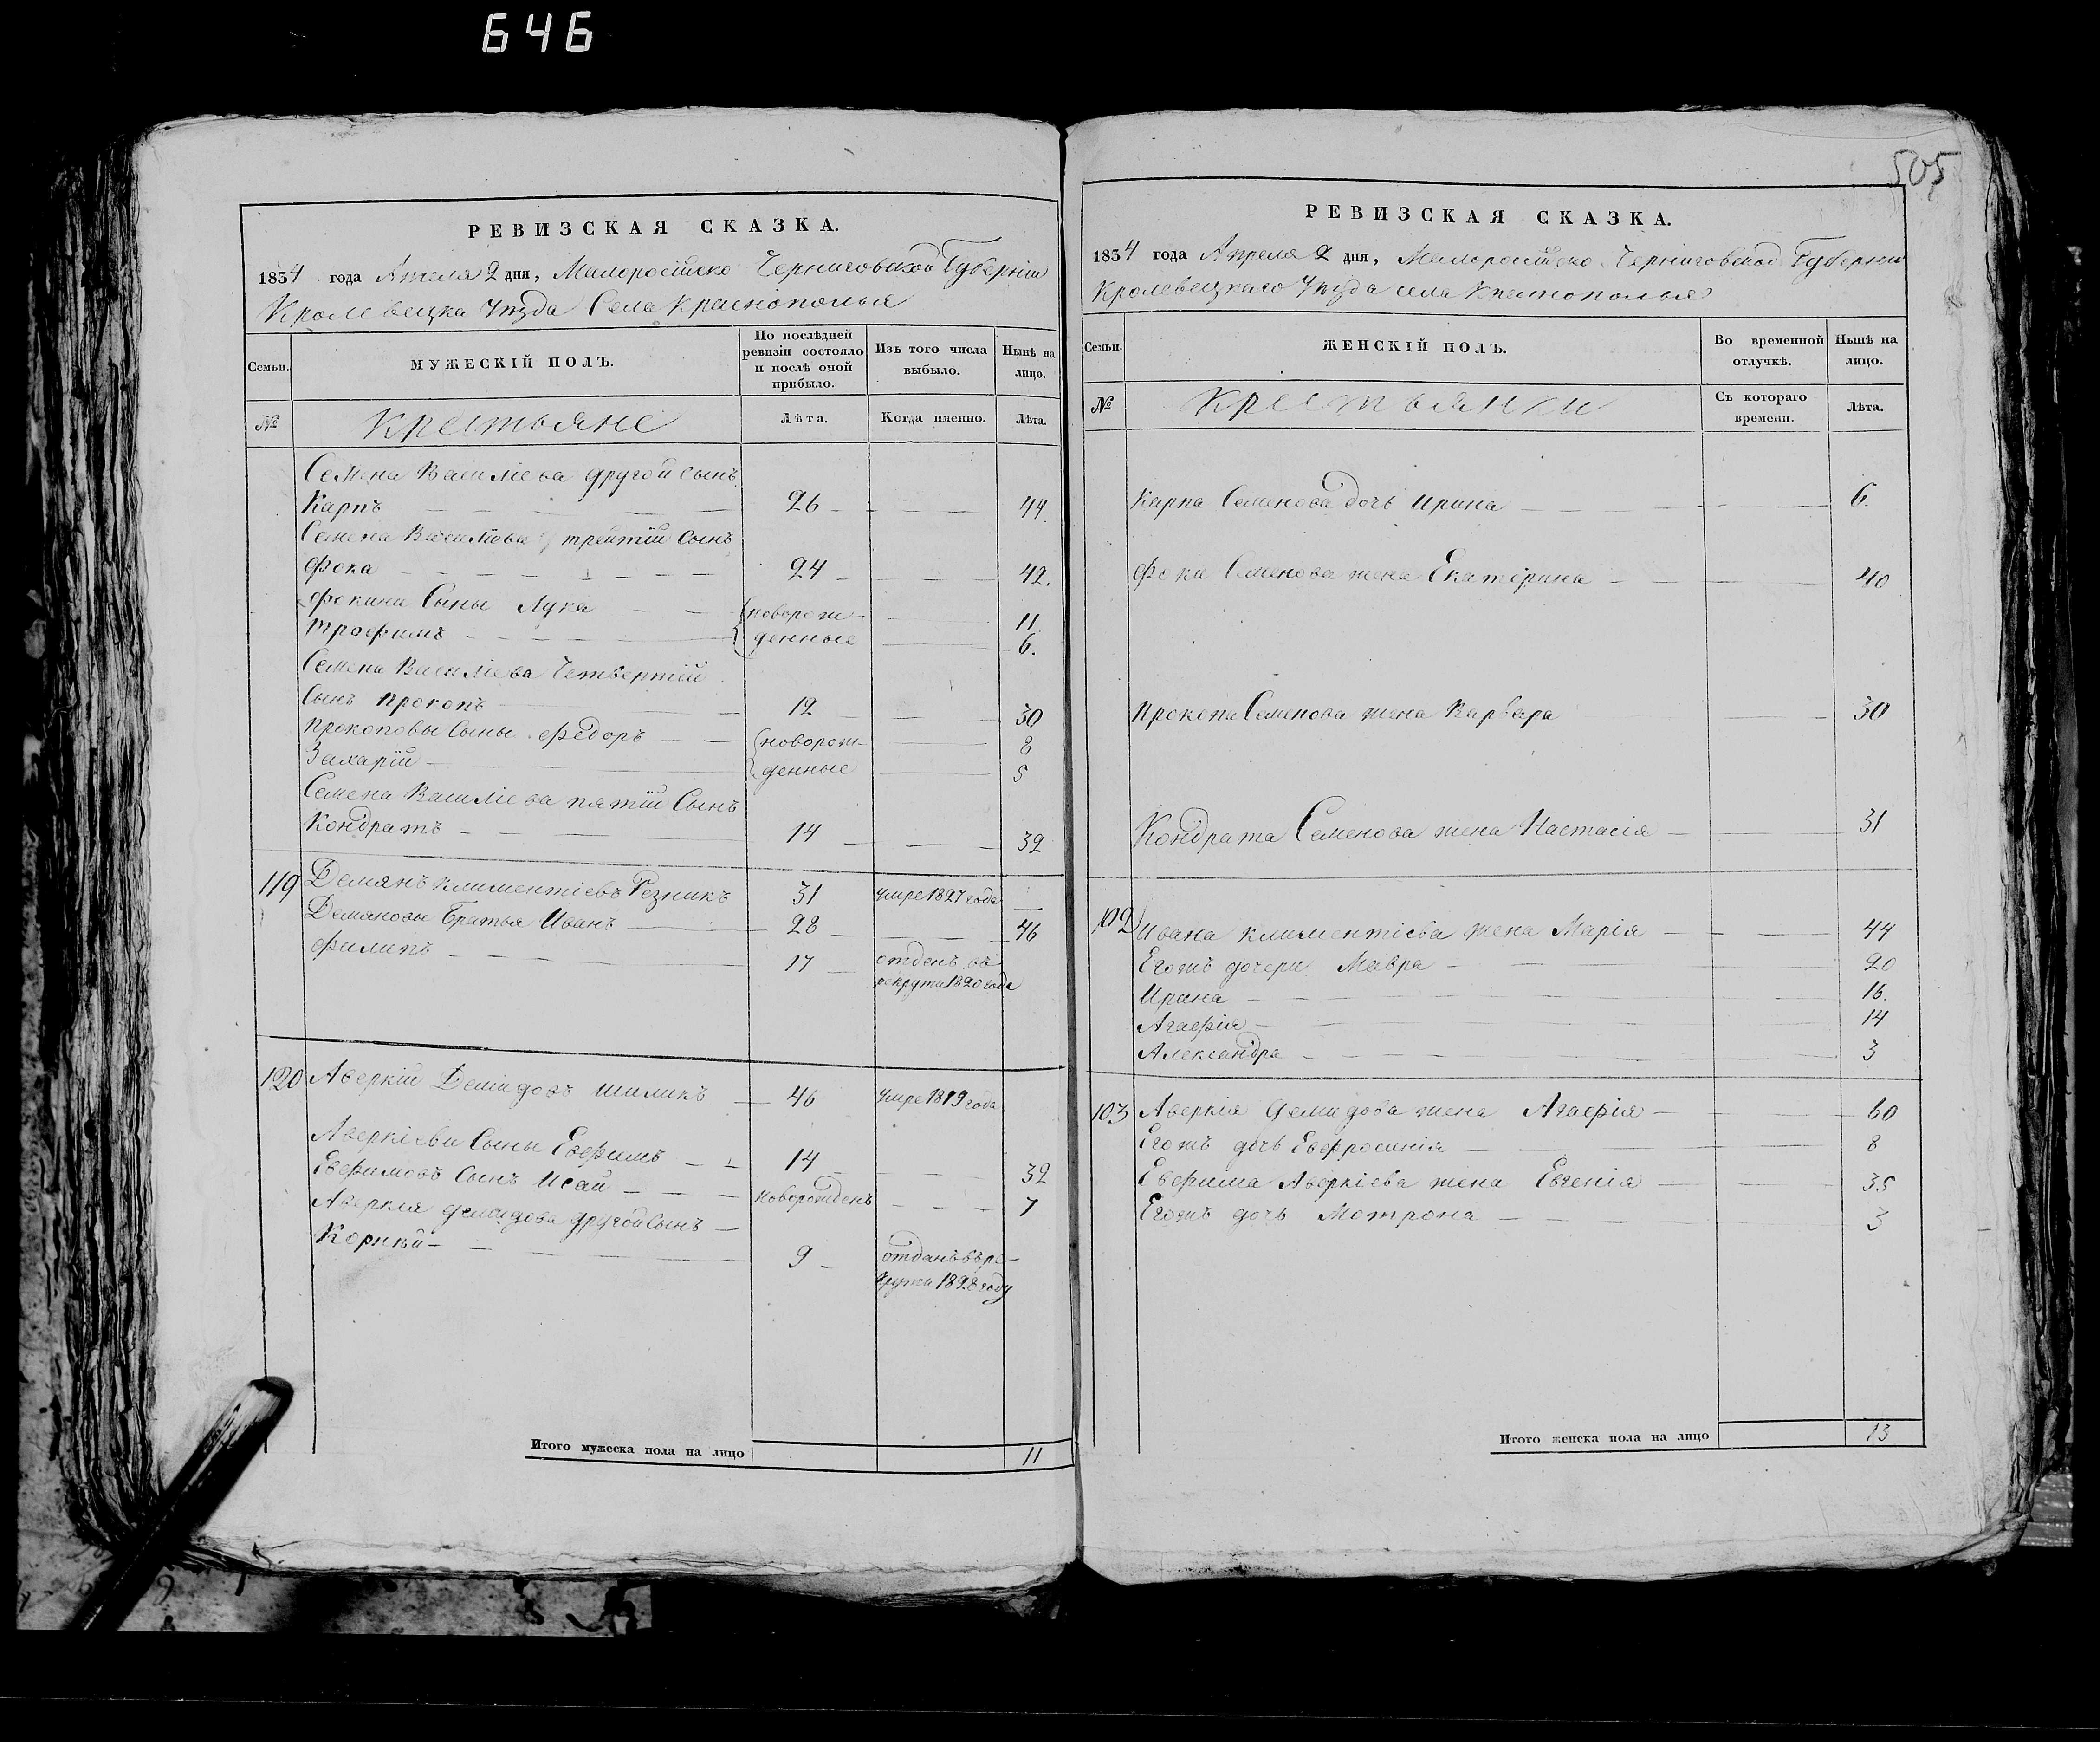 646
РЕВИЗСКАЯ СКАЗКА.
1834 года Апреля 2 дня, Малоросійско Черниговской Губерніи
Кролевецка Уѣзда Села Краснополья
Семьи.
МУЖЕСКІЙ ПОЛЪ.
По послѣдней ревизіи состояло и послѣ оной прибыло.
Изъ того числа выбыло.
Нынѣ на лицо.
№ Крестьяне Лѣта. Когда именно. Лѣта.
Семена Василіева другой сынъ
Карпъ 26 44.
Семена Василіева третій сынъ
Фока 24 42.
Фокины Сыны Лука {новорож- 11
Трофимъ {денные 6.
Семена Василіева Четвертій
Сынъ Прокопъ 12 30
Прокоповы Сыны Федоръ {новорож- 8
Захарій {денные 5
Семена Василіева пятій Сынъ
Кондратъ 14 32
119 Демянъ климентіевъ Резникъ 31 умре 1827 года
Демяновы Братья Иванъ 28 46
Филипъ 17 отденъ въ
рекрута 1820 года
120 Аверкій Демидовъ Шиликъ 46 умре 1819 года
Аверкіеви Сыны Евфимъ 14 32
Евфимовъ Сынъ Исай новорожденъ 7
Аверкия демидова другой Сынъ
Корнѣй 9 отданъ въ ре-
круты 1828 году
Итого мужеска пола на лицо 11
505
РЕВИЗСКАЯ СКАЗКА.
1834 года Апреля 2 дня, Малоросійско Черниговской Губернии
Кролевецкаго Уѣзда села Краснополья
Семьи.
ЖЕНСКІЙ ПОЛЪ.
Во временной отлучкѣ.
Нынѣ на лицо.
№ Крестьянки Съ котораго времени. Лѣта.
Карпа Семенова дочь Ирина 6.
Фоки Семенова жена Екатерина 40
Прокопа Семенова жена Варвара 30
Кондрата Семенова жена Настасія 31
102 Ивана климентіева жена Марія 44
Егожъ дочери Мавра 20
Ирина 16.
Агафія 14
Александра 3
103 Аверкія демидова жена Агафія 60
Егожъ дочь Евфросинія 8
Евфима Аверкіева жена Евгенія 35
Егожъ дочь Мотрона 3
Итого женска пола на лицо 13